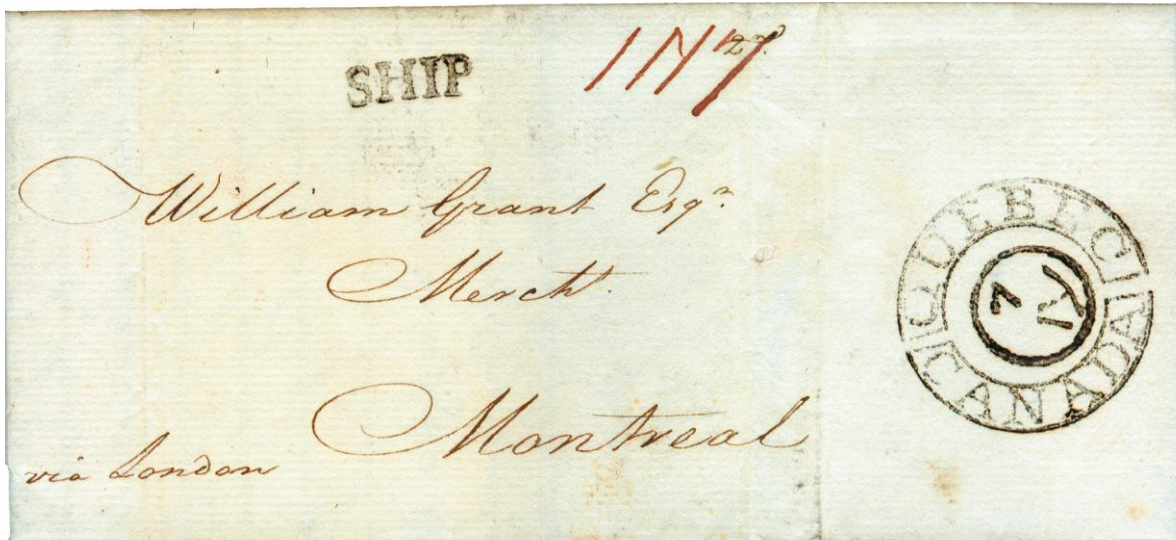 SHIP
1N7
William Grant Esqr.
Mercht.
Montreal
via London
QUEBEC
CANADA
7
IY